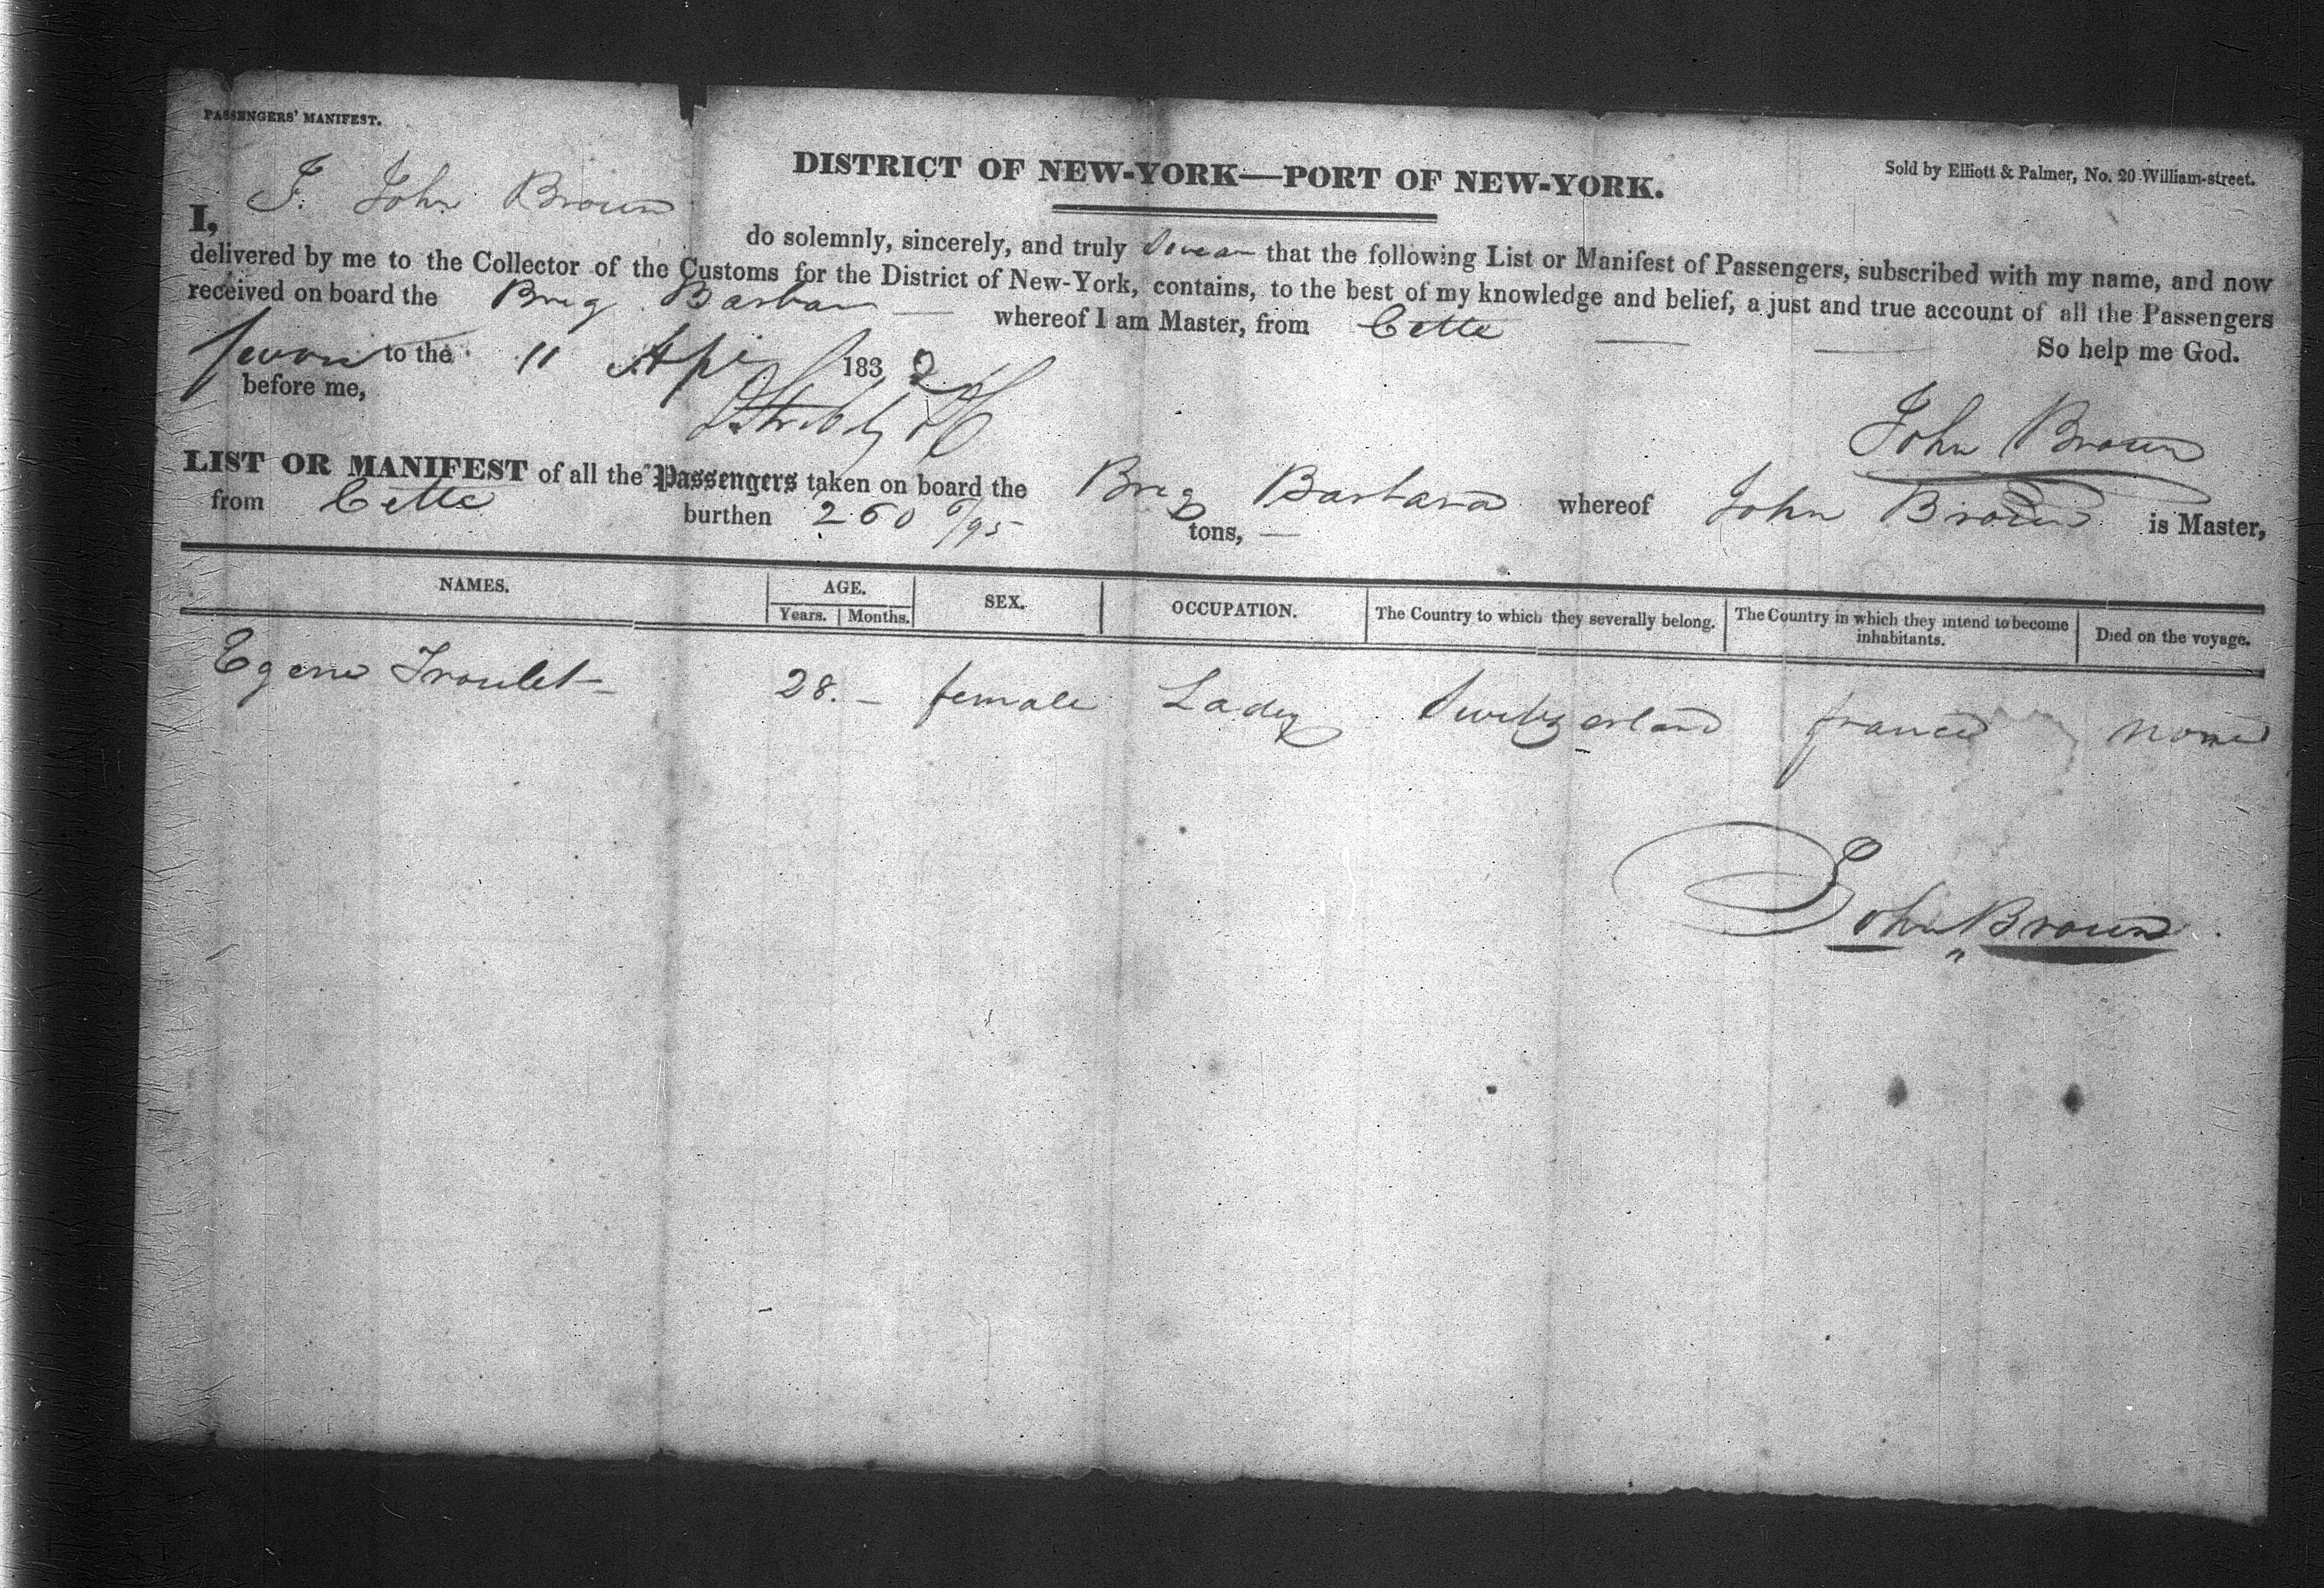 PASSENGERS' MANIFEST.
DISTRICT OF NEW-YORK—PORT OF NEW-YORK.
Sold by Elliott & Palmer, No. 20 William-street.
I, I. John Brown do solemnly, sincerely, and truly swear that the following List or Manifest of Passengers, subscribed with my name, and now
delivered by me to the Collector of the Customs for the District of New-York, contains, to the best of my knowledge and belief, a just and true account of all the Passengers
received on board the Brig Barbara whereof I am Master, from Cette
So help me God.
Sworn to the 11 Apl 1832
before me,
John Brown
LIST OR MANIFEST of all the Passengers taken on board the Brig Barbara whereof John Brown is Master,
from Cette burthen 260 6/95 tons,
NAMES. AGE. SEX. OCCUPATION. The Country to which they severally belong. The Country in which they intend to become inhabitants. Died on the voyage.
Years. Months.
Egene Troulet 28. — female Lady Switzerland france none
John Brown